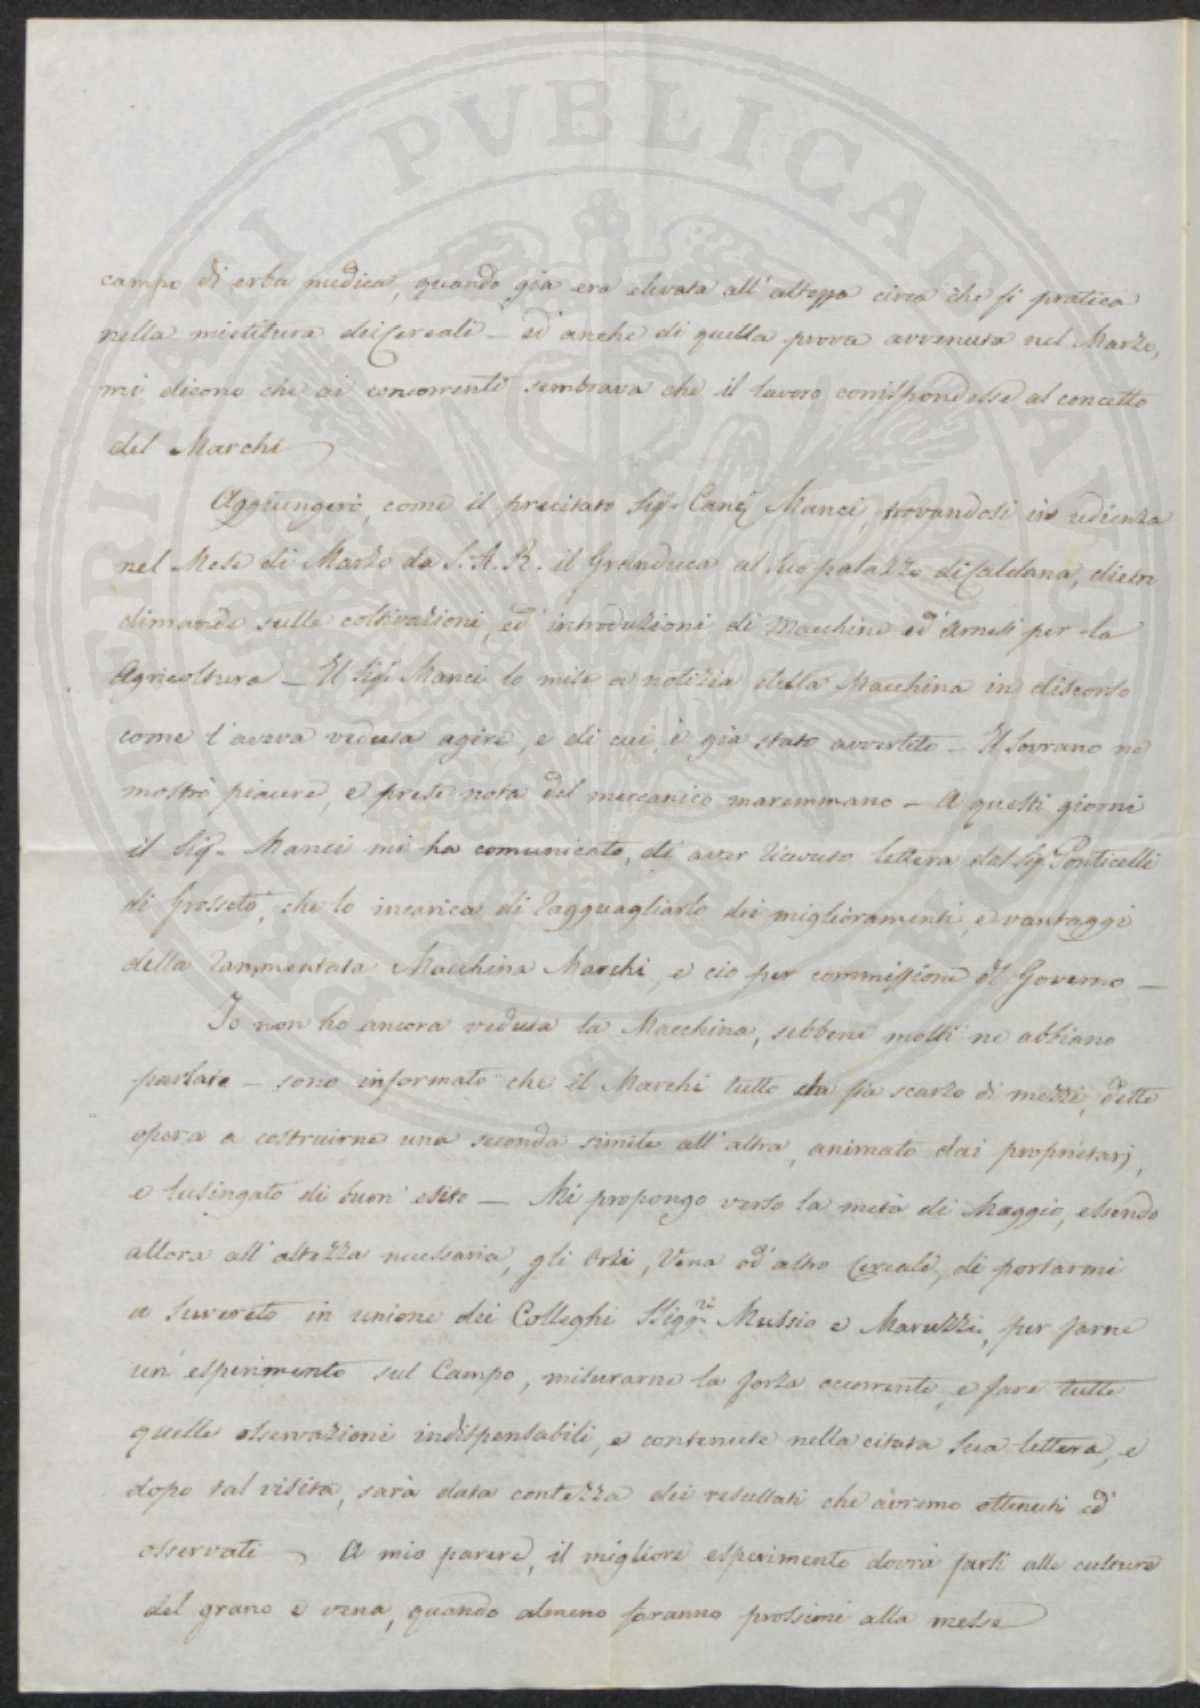 campo di erba medica, quando già era elevata all'altezza circa che si pratica
nella mietitura dei Cereali – ed anche di quella prova avvenuta nel Marzo,
mi dicono che ai concorrenti sembrava che il lavoro corrispondesse al concetto
del Marchi
Aggiungerò, come il precitato Sig. Canc. Manci, trovandosi in udienza
nel Mese di Marzo da S. A. R. il Granduca al suo palazzo di Caldana, dietro
dimande sulle coltivazioni, ed introduzioni di Macchine ed Arnesi per la
Agricoltura – Il Sig. Manci lo mise a notizia della Macchina in discorso
come l'aveva veduta agire, e di cui è già stato avvertito – Il Sovrano ne
mostrò piacere, e prese nota del meccanico maremmano – A questi giorni
il Sig. Manci mi ha comunicato, di aver ricevuto lettera dal Sig. Ponticelli
di Grosseto, che lo incarica di ragguagliarlo dei miglioramenti, e vantaggi
della rammentata Macchina Marchi, e ciò per commissione del Governo –
Io non ho ancora veduta la Macchina, sebbene molti ne abbiano
parlato – sono informato che il Marchi tutto che sia scarzo di mezzi, dette
opera a costruirne una seconda simile all'altra, animato dai proprietarj,
e lusingato di buon' esito – Mi propongo verso la metà di Maggio, essendo
allora all'altezza necessaria, gli Orzi, Vena od' altro Cereale, di portarmi
a Suvereto in unione dei Colleghi Sigg.ri Mussio e Maruzzi, per farne
un' esperimento sul Campo, misurarne la forza occorrente, e fare tutte
quelle osservazioni indispensabili, e contenute nella citata Sua lettera, e
dopo tal visita, sarà data contezza dei resultati che avremo ottenuti ed'
osservati A mio parere, il migliore esperimento dovrà farsi alle culture
del grano e vena, quando almeno saranno prossimi alla messe
PUBLICAE